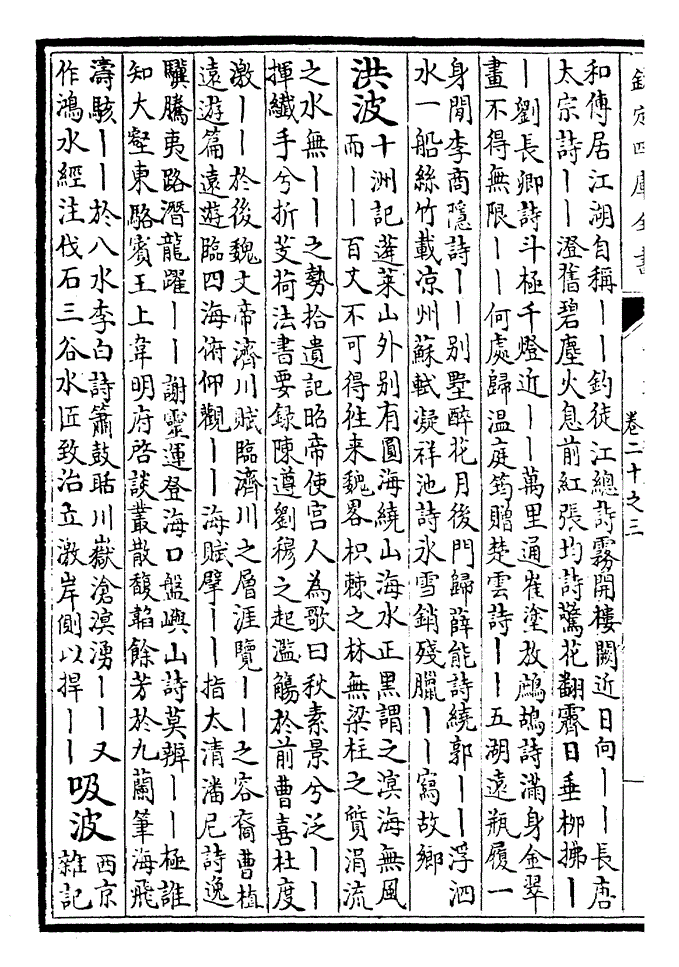 欽定四庫全書
卷二十之三
和傳居江湖自稱丨丨釣徒江總詩霧開樓闕近日向丨丨長唐
太宗詩丨丨澄舊碧塵火息前紅張均詩驚花翻霽日垂柳拂丨
丨劉長卿詩斗極千燈近丨丨萬里通崔塗放鷓鴣詩滿身金翠
畫不得無限丨丨何處歸温庭筠贈楚雲詩丨丨五湖遠瓶履一
身閒李商隱詩丨丨别墅醉花月後門歸薛能詩繞郭丨丨浮泗
水一船絲竹載凉州蘇軾凝祥池詩氷雪銷殘臘丨丨寫故鄉
洪波
十洲記蓬萊山外别有圓海繞山海水正黑謂之溟海無風
而丨丨百丈不可得往来魏畧枳棘之林無梁柱之質涓流
之水無丨丨之勢拾遺記昭帝使宫人為歌曰秋素景兮泛丨丨
揮纖手兮折芰荷法書要録陳遵劉穆之起濫觴於前曹喜杜度
激丨丨於後魏文帝濟川賦臨濟川之層涯覽丨丨之容裔曹植
遠遊篇遠遊臨四海俯仰觀丨丨海賦擘丨丨指太清潘尼詩逸
驥騰夷路潛龍躍丨丨謝靈運登海口盤嶼山詩莫辨丨丨極誰
知大壑東駱賓王上韋明府啓談叢散馥韜餘芳於九蘭筆海飛
濤駭丨丨於八水李白詩簫鼓聒川嶽滄溟湧丨丨又
作鴻水經注伐石三谷水匠致治立激岸側以捍丨丨
吸波
西京
雜記